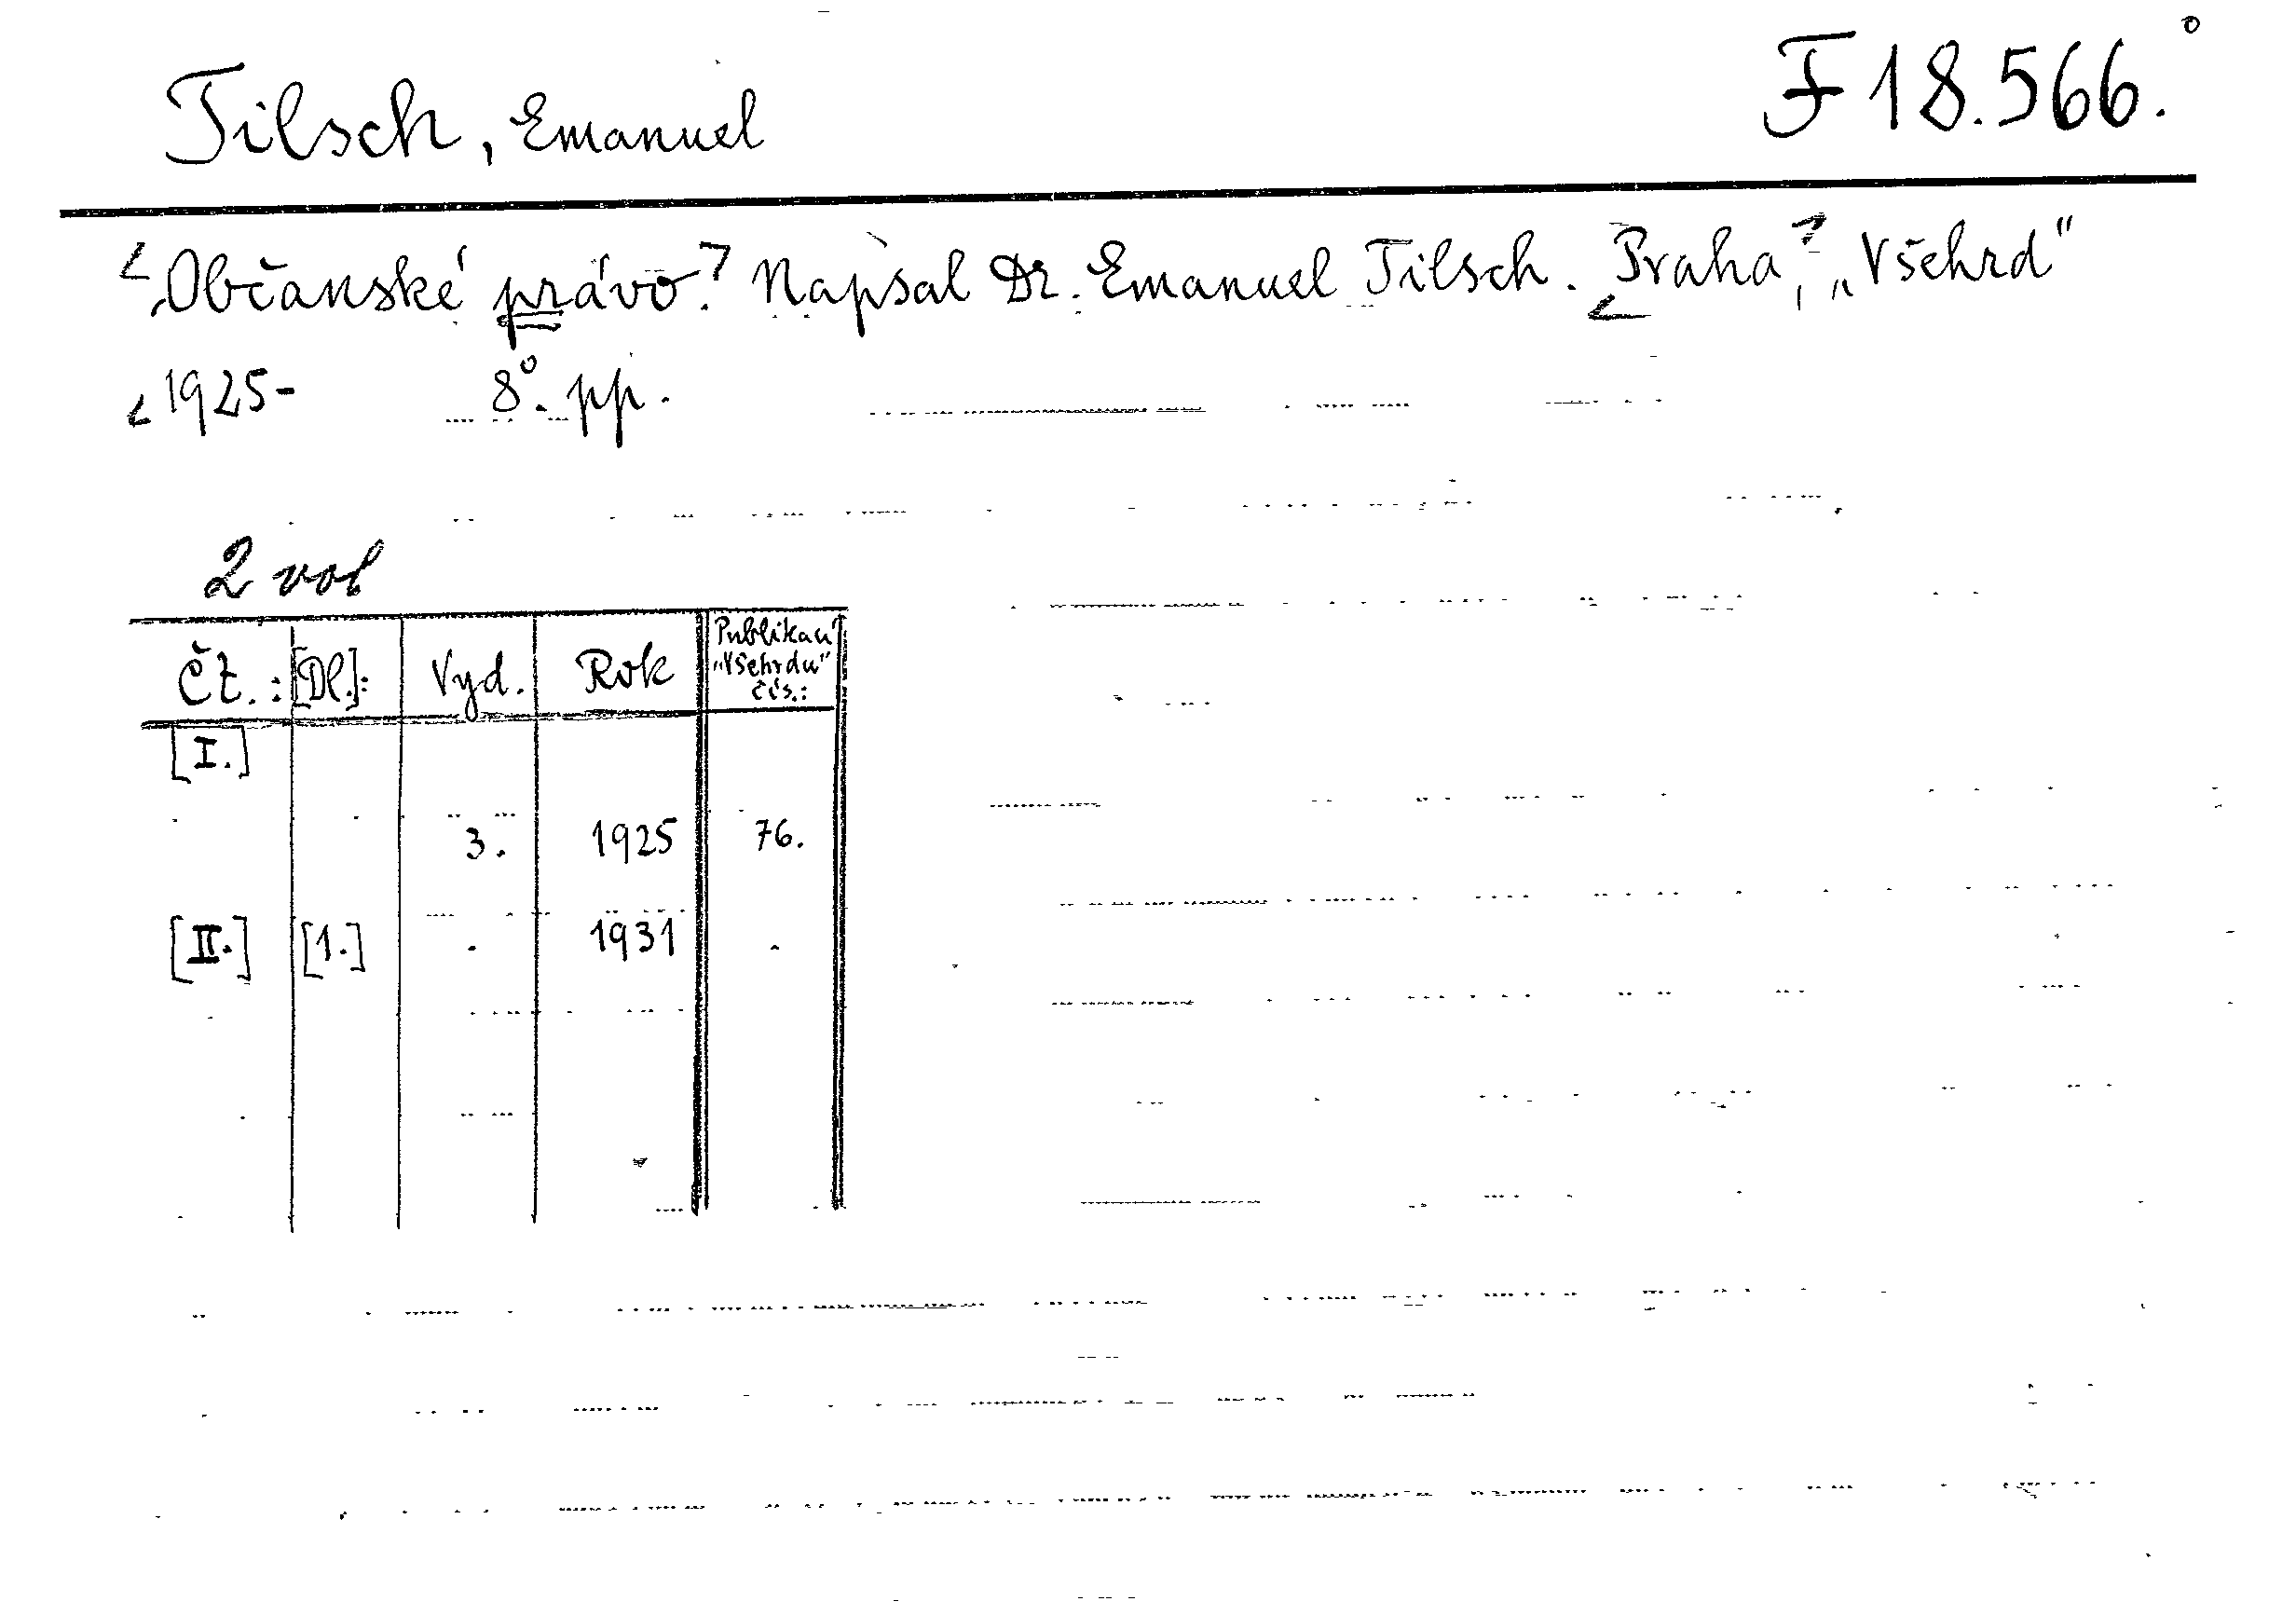 Tilsch, Emanuel F 18.566.°
„Občanské právo." Napsal Dr. Emanuel Tilsch. Praha, „Všehrd"
1925- 8°. pp.
2 vol
Čt.: [Dl.]: Vyd. Rok Publikací „Všehrdu" čís.:
[I.]
3. 1925 76.
[II.] [1.] . 1931 .